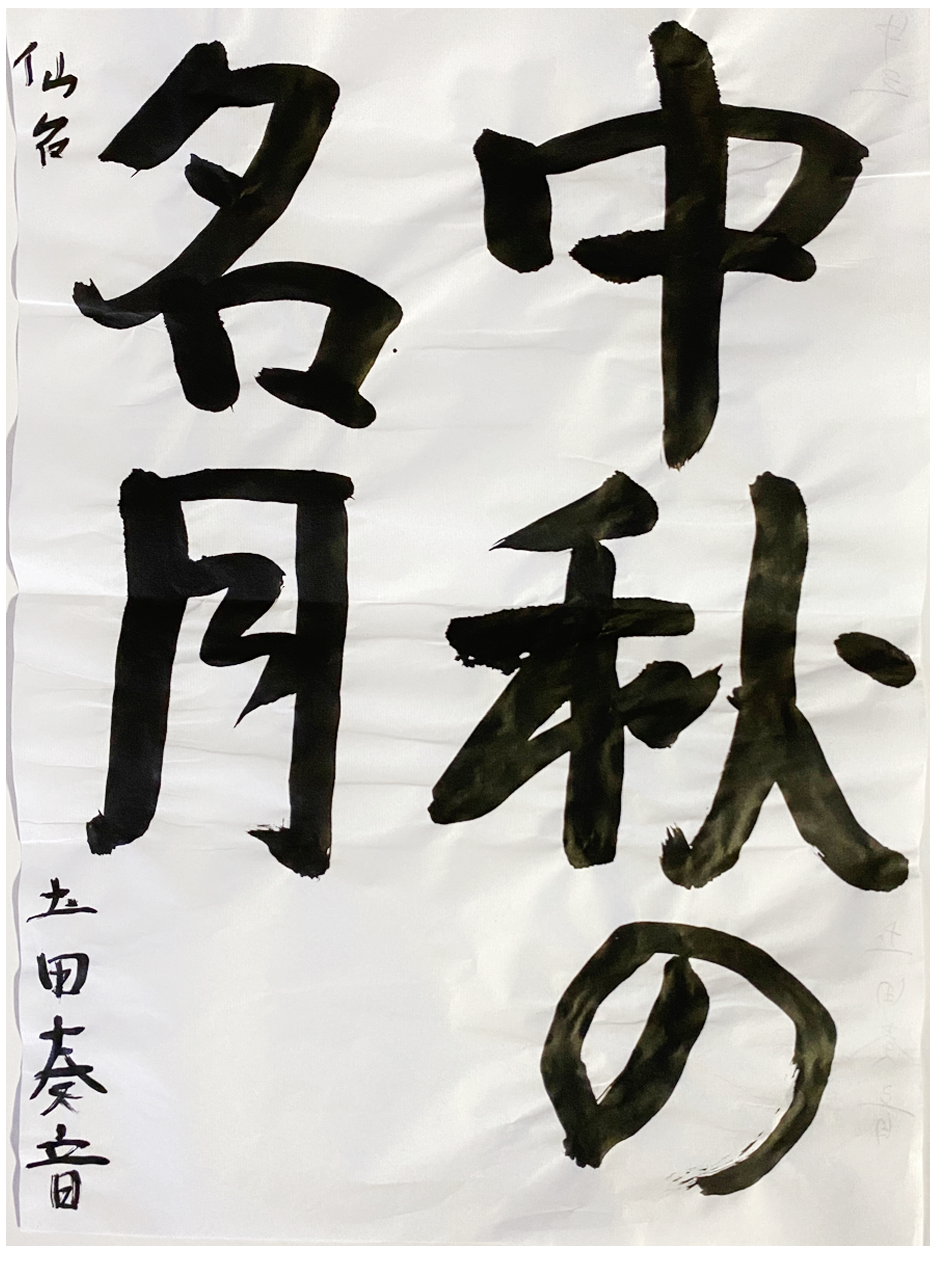 中秋の
名月
仙台
土田奏音